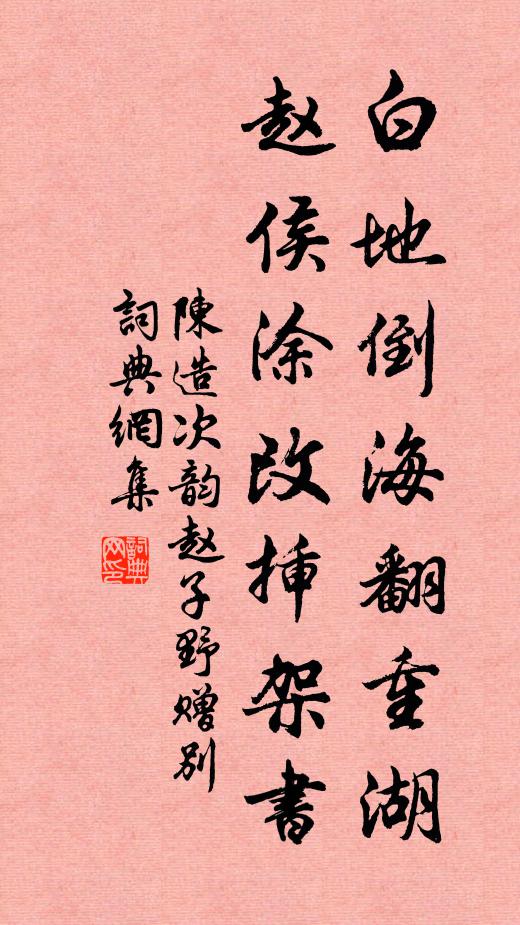 白地倒海翻重湖
赵侯涂改挿架書
陳造次韵赵子野赠别
詞典網集
詞典网印